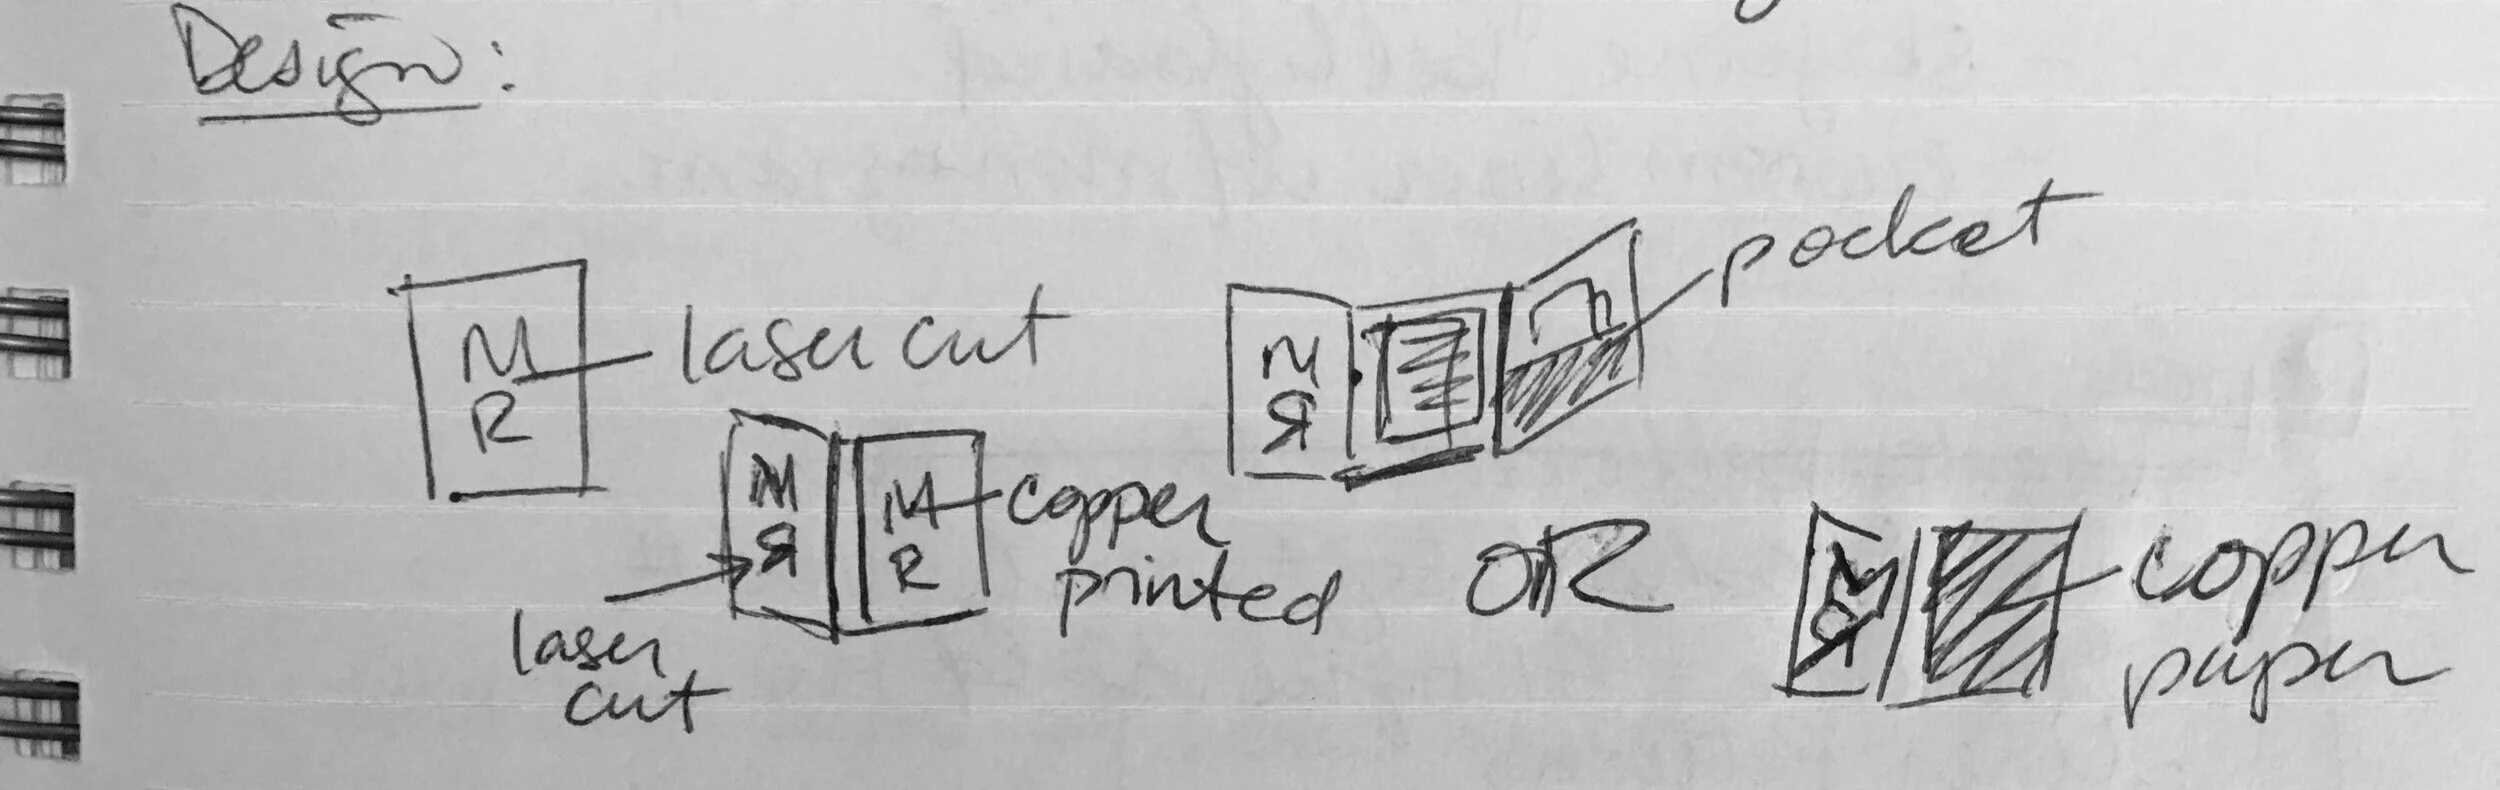 Design:
M
R
laser cut
M
Я
laser
cut
M
R
copper
printed
M
Я
pocket
OR
M
Я
copper
paper